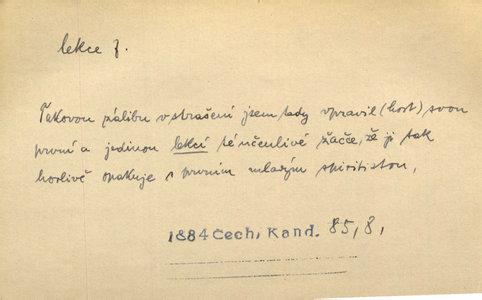 lekce f.
Takovou zálibu v strašení jsem tedy vpravil (host) svou
první a jedinou lekcí té učenlivé žačce, že ji tak
horlivě opakuje s prvním mladým spiritistou,
1884 Čech, Kand. 85,8,